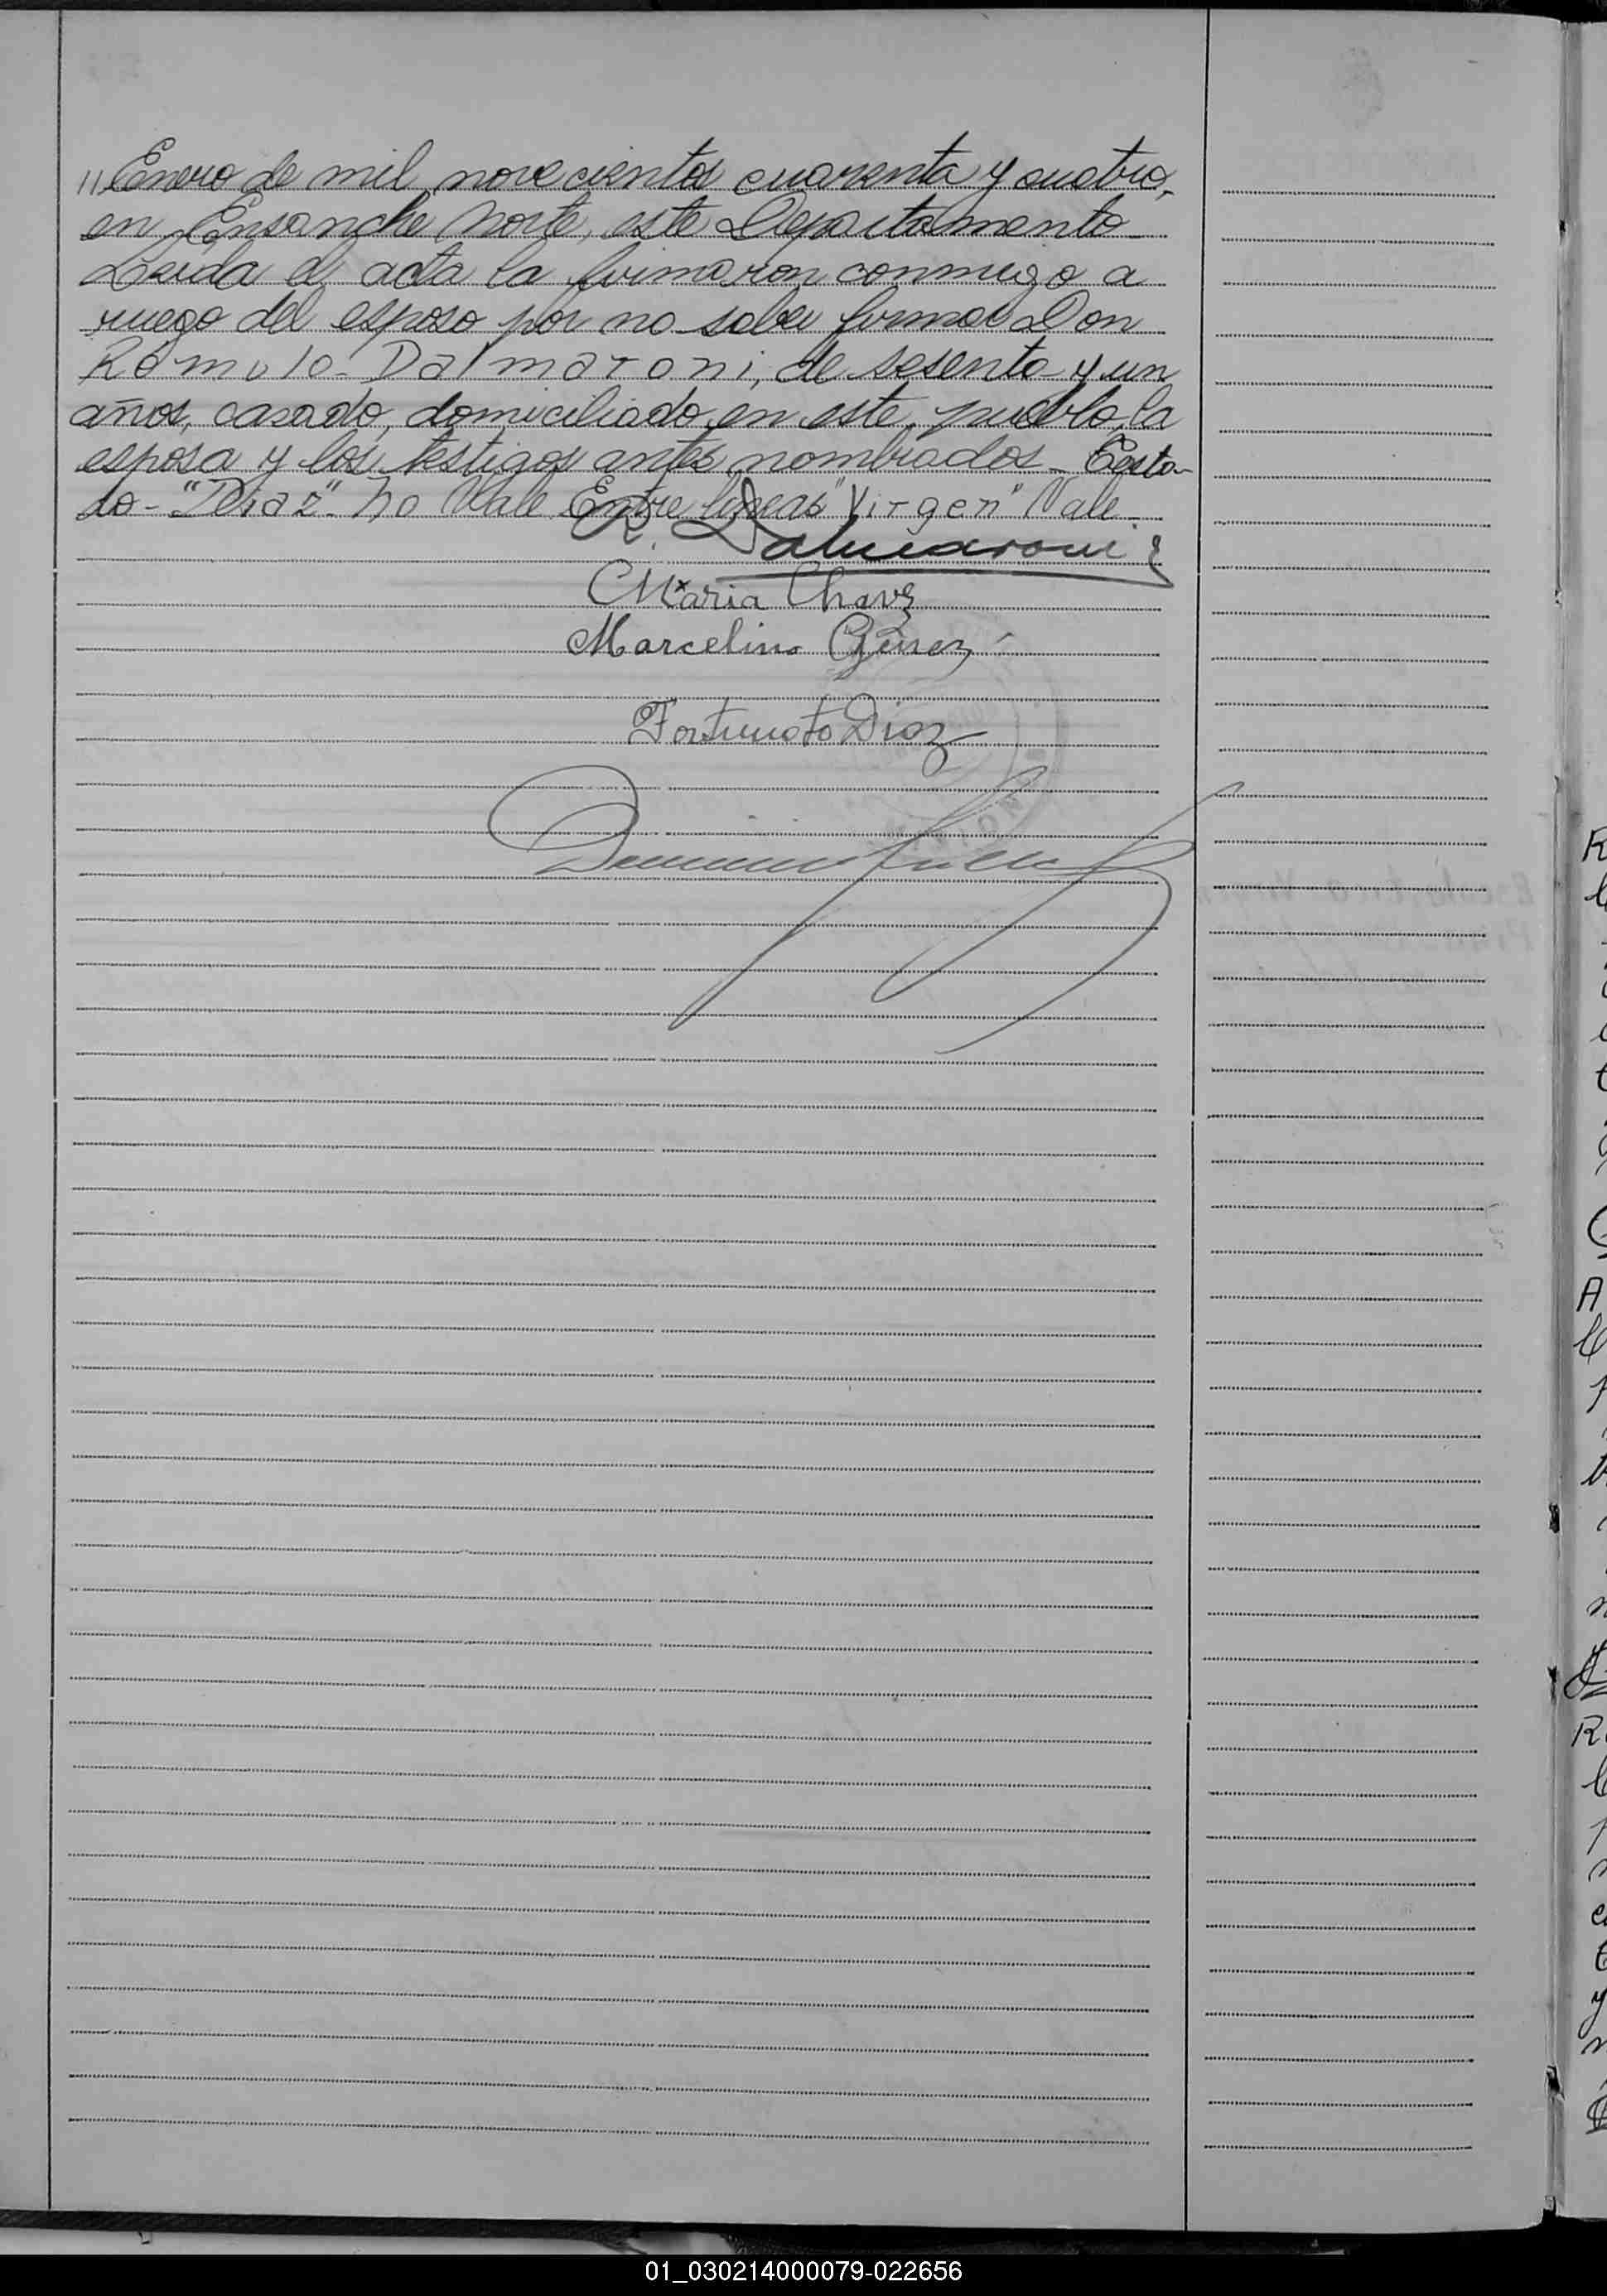 "Enero de mil novecientos cuarenta y cuatro,
en Ensanche Norte, este Departamento_
Leida el acta la firmaron conmigo a
ruego del esposo por no saber firmar Don
Rómulo Dalmaroni, de sesenta y un
años, casado, domiciliado en este pueblo, la
esposa y los testigos antes nombrados_ Testa-
do- " " No Vale. Entre lineas "Virgen" Vale.
R. Dalmaroni
Maria Chavz
Marcelino
Fortunato Diaz
01_030214000079-022656